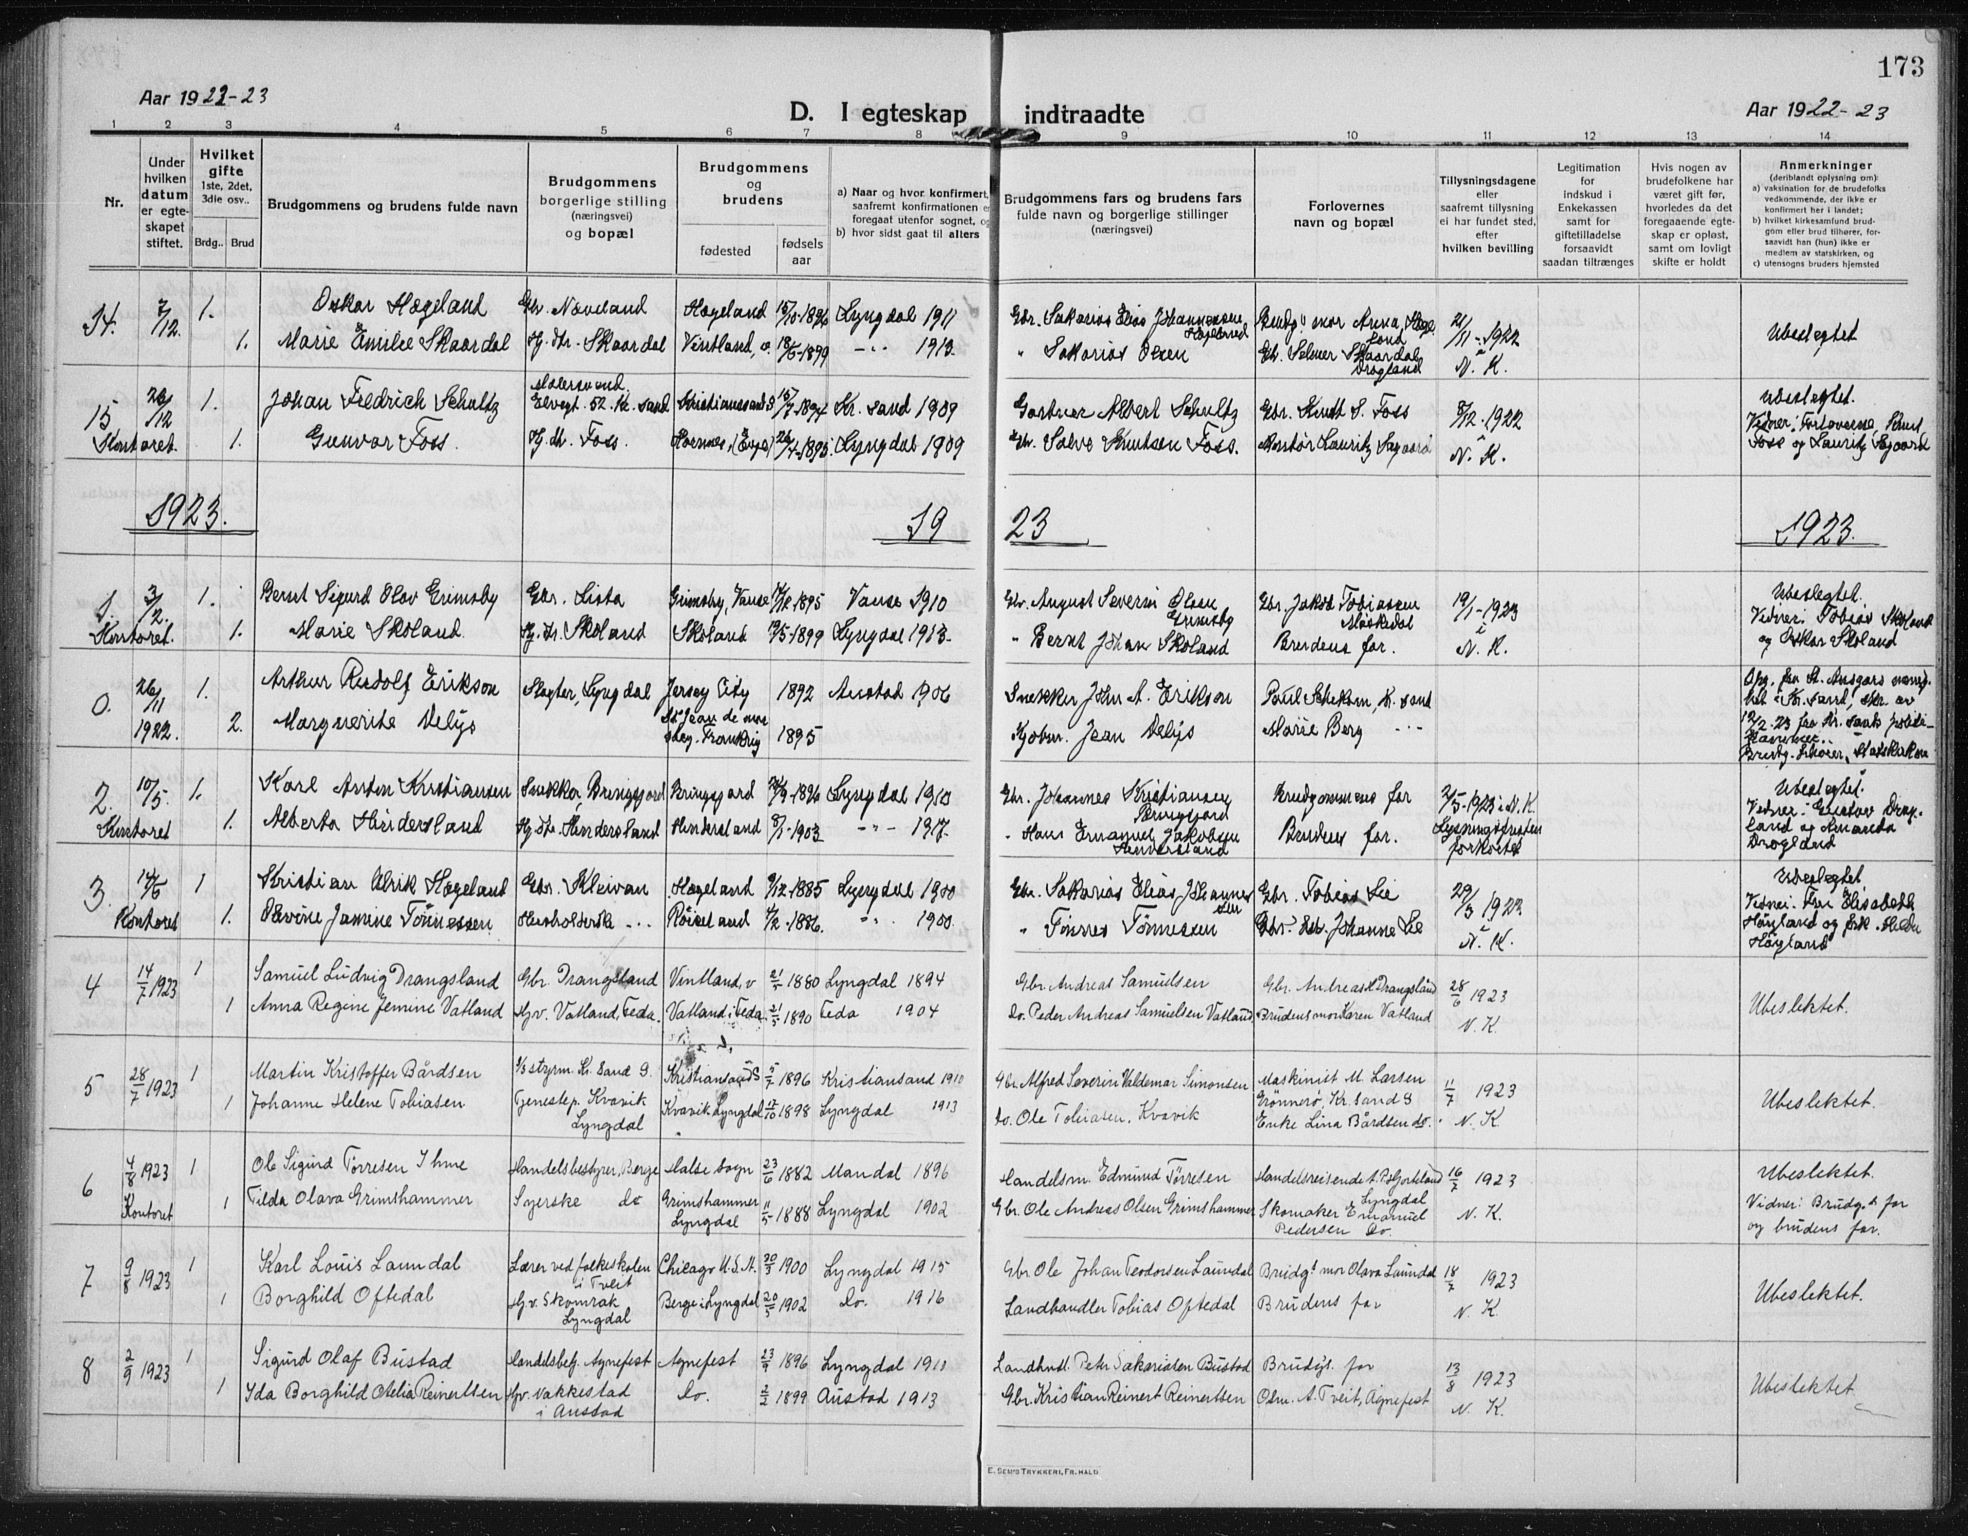 173
Aar 1922-23
D. I egteskap indtraadte
Aar 1922-23
1 2 3 4 5 6 7 8 9 10 11 12 13 14
Nr.
Under hvilken datum er egteskapet stiftet.
Hvilket gifte 1ste, 2det, 3die osv..
Brdg.. Brud
Brudgommens og brudens fulde navn
Brudgommens borgerlige stilling (næringsvei) og bopæl
Brudgommens og brudens
fødested
fødsels aar
a) Naar og hvor konfirmert, saafremt konfirmationen er foregaat utenfor sognet, og
b) hvor sidst gaat til alters
Brudgommens fars og brudens fars fulde navn og borgerlige stillinger (næringsvei)
Forlovernes navn og bopæl
Tillysningsdagene eller saafremt tillysning ei har fundet sted, efter hvilken bevilling
Legitimation for indskud i Enkekassen samt for giftetilladelse forsaavidt saadan tiltrænges
Hvis nogen av brudefolkene har været gift før, hvorledes da det foregaaende egteskap er opløst, samt om lovligt skifte er holdt
Anmerkninger (deriblandt oplysning om):
a) vaksination for de brudefolks vedkommende, der ikke er konfirmert her i landet;
b) hvilket kirkesamfund brudgom eller brud tilhører, forsaavidt han (hun) ikke er medlem av statskirken, og
c) utensogns bruders hjemsted
14. 7/12. 1. Oskar Hægeland Gbr. Næveland Hægeland 15/10-1896 Lyngdal 1911 Gbr. Sakarias Elias Johannessen Hægeland Brudg.s mor Anna Hægeland 21/11-1922 Ubeslegtet
1. Marie Emilie Skaardal Hj. dtr. Skaardal Vintland, v. 18/5-1899 -"- 1913. " Sakarias Olsen Gbr. Selmer Skaardal Drogland i N. K.
15 26/12 1. Johan Fredrich Schultz Malersvend Elvegt. 52. Kr. sand Kristianssand S 15/7-1894 Kr. sand 1909 Gartner Albert Schultz Gbr. Knut S. Foss 8/12-1922 Ubeslegtet.
Kontoret. 1. Gunvor Foss. Hj. dt. Foss. 1895 Lyngdal 1909 Gbr. Salve Knutsen Foss. Montør Lauritz Sagaard i N. K. Vidner: Forloverne, Knut Foss og Lauritz Sagaard
1923. 19 23 1923.
1. 3/2. 1. Bernt Sigurd Olav Grimsby Gbr. Lista Grimsby, Vanse 1895 Vanse 1910 Gbr. August Severin Olsen Grimsby Gbr. Jakob Tobiassen 19/1-1923 Ubeslegtet.
Kontoret. 1. Marie Skoland Hj. dr. Skoland Skoland 19/5-1899 Lyngdal 1913. " Bernt Johan Skoland Brudens far. i N. K. Vidner: Tobias Skoland og Oskar Skoland
0. 26/11 1922. 1. Arthur Rudolf Erikson Slagter, Lyngdal Jersey City 1892 Austad 1906 Snekker John A. Erikson Paul Scheken Kr. sand
2. Marguerite Delys Frankrig 1895 Kjøbm. Jean Delys Marie Berg -"-
Opg. fra St. Ansgars menighet i Kr. sand, skr. av 12/2-23 fra Kr. sands politikammer.
2. 10/5. 1. Karl Anton Kristiansen Snekker, Bringsjord Bringsjord 1896 Lyngdal 1910 Gbr. Johannes Kristiansen Bringsjord Brudgommens far 2/5-1923 i N. K. Ubeslegtet.
Kontoret 1. Alberta Hindersland Hj. dtr. Hindersland Hindersland 8/1-1903 -"- 1917. " Hans Emanuel Jakobsen Hindersland Brudens far. Lysningsfristen forkortet Vidner: Gustav Drogland og Amanda Drogland
3. 14/5 1 Kristian Ulrik Hægeland Gbr. Kleivan Hægeland 9/12-1885 Lyngdal 1900 Gbr. Sakarias Elias Johannessen Gbr. Tobias Lie 29/3 1923 Ubeslegtet
Kontoret 1. Olevine Jamine Tönnessen Husholderske -"- Röiseland 1886. -"- 1900. " Tönnes Tönnessen Johanne Lie i N. K. Vidner: Fru Elisabeth Høyland og frk. Hilda Høyland
4 14/7 1923 1 Samuel Ludvig Drangsland Gbr. Drangsland Vintland, v 21/5 1880 Lyngdal 1894 Gbr. Andreas Samuelsen Gbr. Andreas Drangsland 28/6 1923
1 Anna Regine Jemine Vatland Hjv. Vatland, Feda. Vatland i Feda. 21/5 1890 Feda 1904 do. Peder Andreas Samuelsen Vatland Brudens mor Karen Vatland N. K Ubeslektet.
5 28/7 1923 1 Martin Kristoffer Bårdsen styrm. Kr. Sand S. Kristiansand S 5/7 1896 Kristiansand 1910 Gbr. Alfred Severin Valdemar Simonsen Maskinist M. Larsen Grönnerö, Kr. Sand S 11/7 1923
1 Johanne Helene Tobiasen Tjenestep. Kvavik Lyngdal Kvavik Lyngdal 17/10 1898 Lyngdal 1913 do. Ole Tobiasen. Kvavik Enke Lina Bårdsen do. N. K Ubeslektet.
6 4/8 1923 Kontoret 1 Ole Sigurd Torresen Ihme Handelsbestyrer, Berge Halse sogn 23/6 1882 Mandal 1896 Handelsm. Edmund Törresen Handelsreisende Lyngdal 16/7 1923 Ubeslektet.
1 Tilda Olava Grimshammer Syerske do Grimshammer Lyngdal 11/5 1888 Lyngdal 1902 Gbr. Ole Andreas Olsen Grimshammer Skomaker Emanuel Pedersen do. N. K. Vidner: Brudg.s far og brudens far.
7 9/8 1923 1 Karl Louis Laundal Lærer ved folkeskolen i Tveit Chicago U.S.A. 20/3 1900 Lyngdal 1915 Gbr. Ole Johan Teodorsen Laundal Brudg.s mor Olava Laundal 18/7 1923
1 Borghild Oftedal Hjv. Skomrak Lyngdal Berge i Lyngdal 20/5 1902 do. 1916 Landhandler Tobias Oftedal Brudens far N. K. Ubeslektet.
8 2/9 1923 1 Sigurd Olaf Bustad Handelsbetj. Agnefest Agnefest 23/9 1896 Lyngdal 1911 Landhndl. Petr Sakariasen Bustad Brudgs. far 13/8 1923
1 Ida Borghild Otelia Reinertsen Hjv. Vakkestad i Austad Do. 2/2 1899 Austad 1913 Gbr. Kristian Reinert Reinertsen A. Tveit, Agnefest N. K. Ubeslektet
E. SEM'S TRYKKERI, FR. HALD